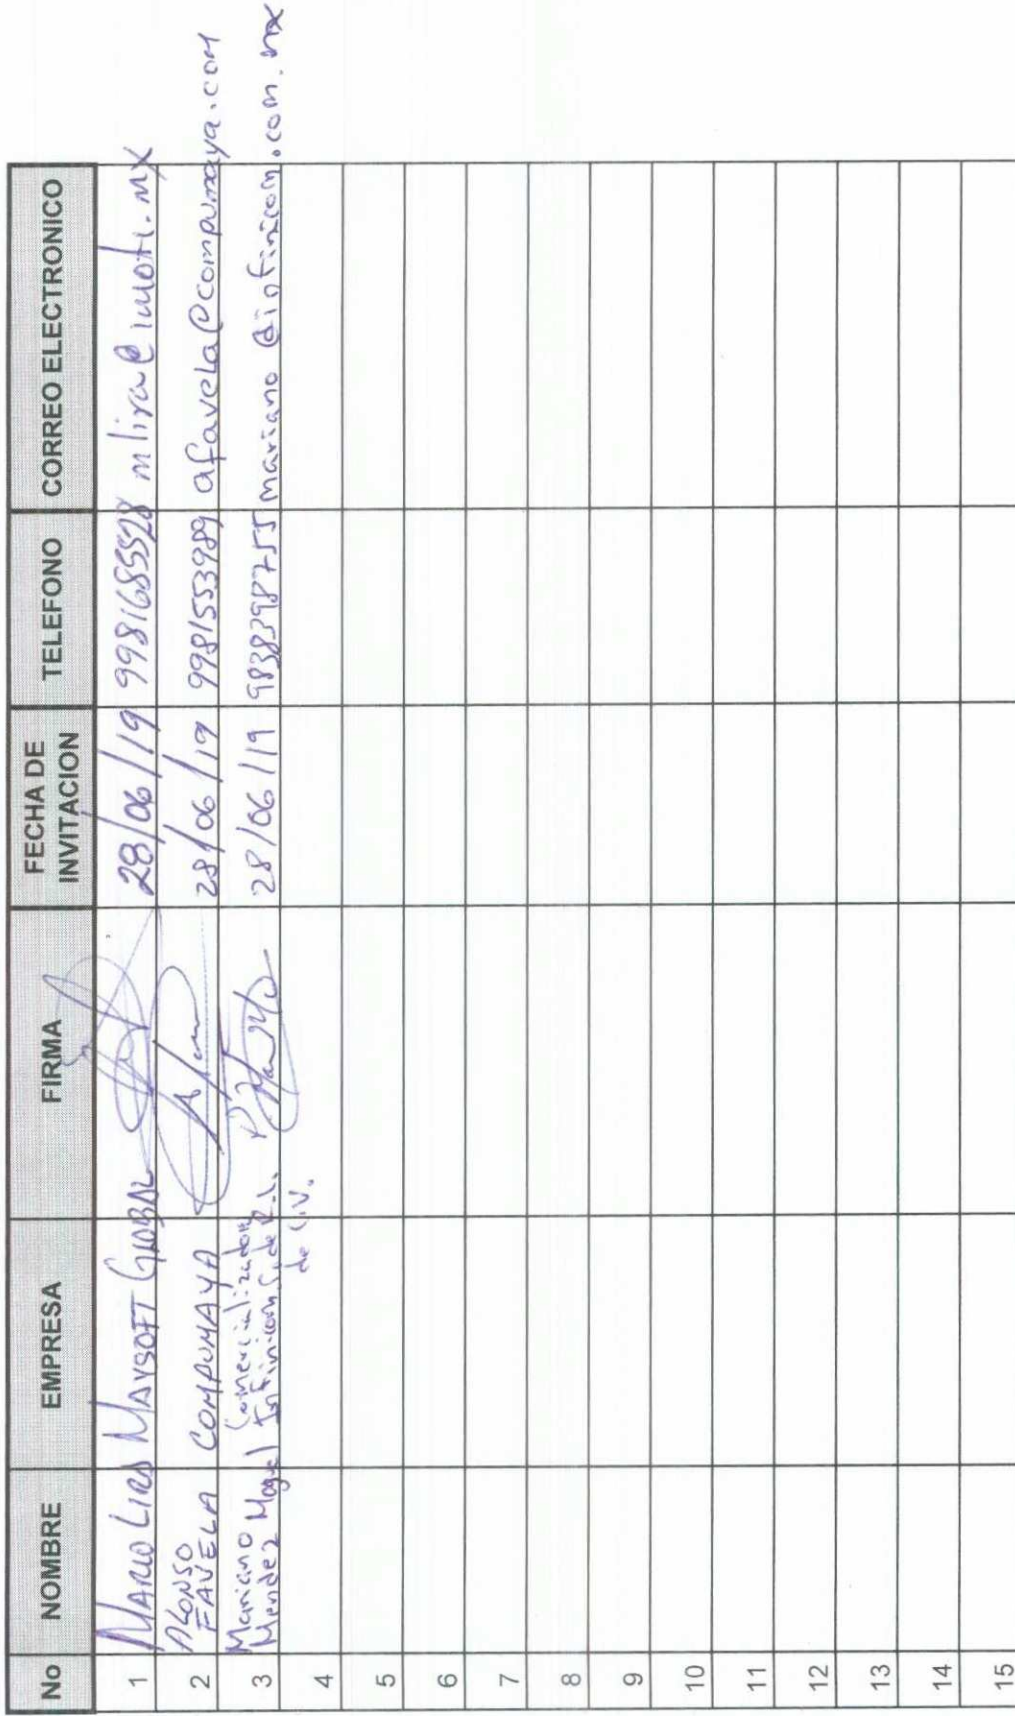 No NOMBRE EMPRESA FIRMA FECHA DE INVITACION TELEFONO CORREO ELECTRONICO
1 MARIO LIRA MAYSOFT GLOBAL 28/06/19 9981685528
2 ALONSO FAVELA COMPUMAYA 28/06/19 9981553989 afavela@compumaya.com
3 Mariano Mendez Moguel Comercializadora Infinicom S. de R.L. de C.V. 28/06/19 9838398755 mariano@infinicom.com.mx
4
5
6
7
8
9
10
11
12
13
14
15